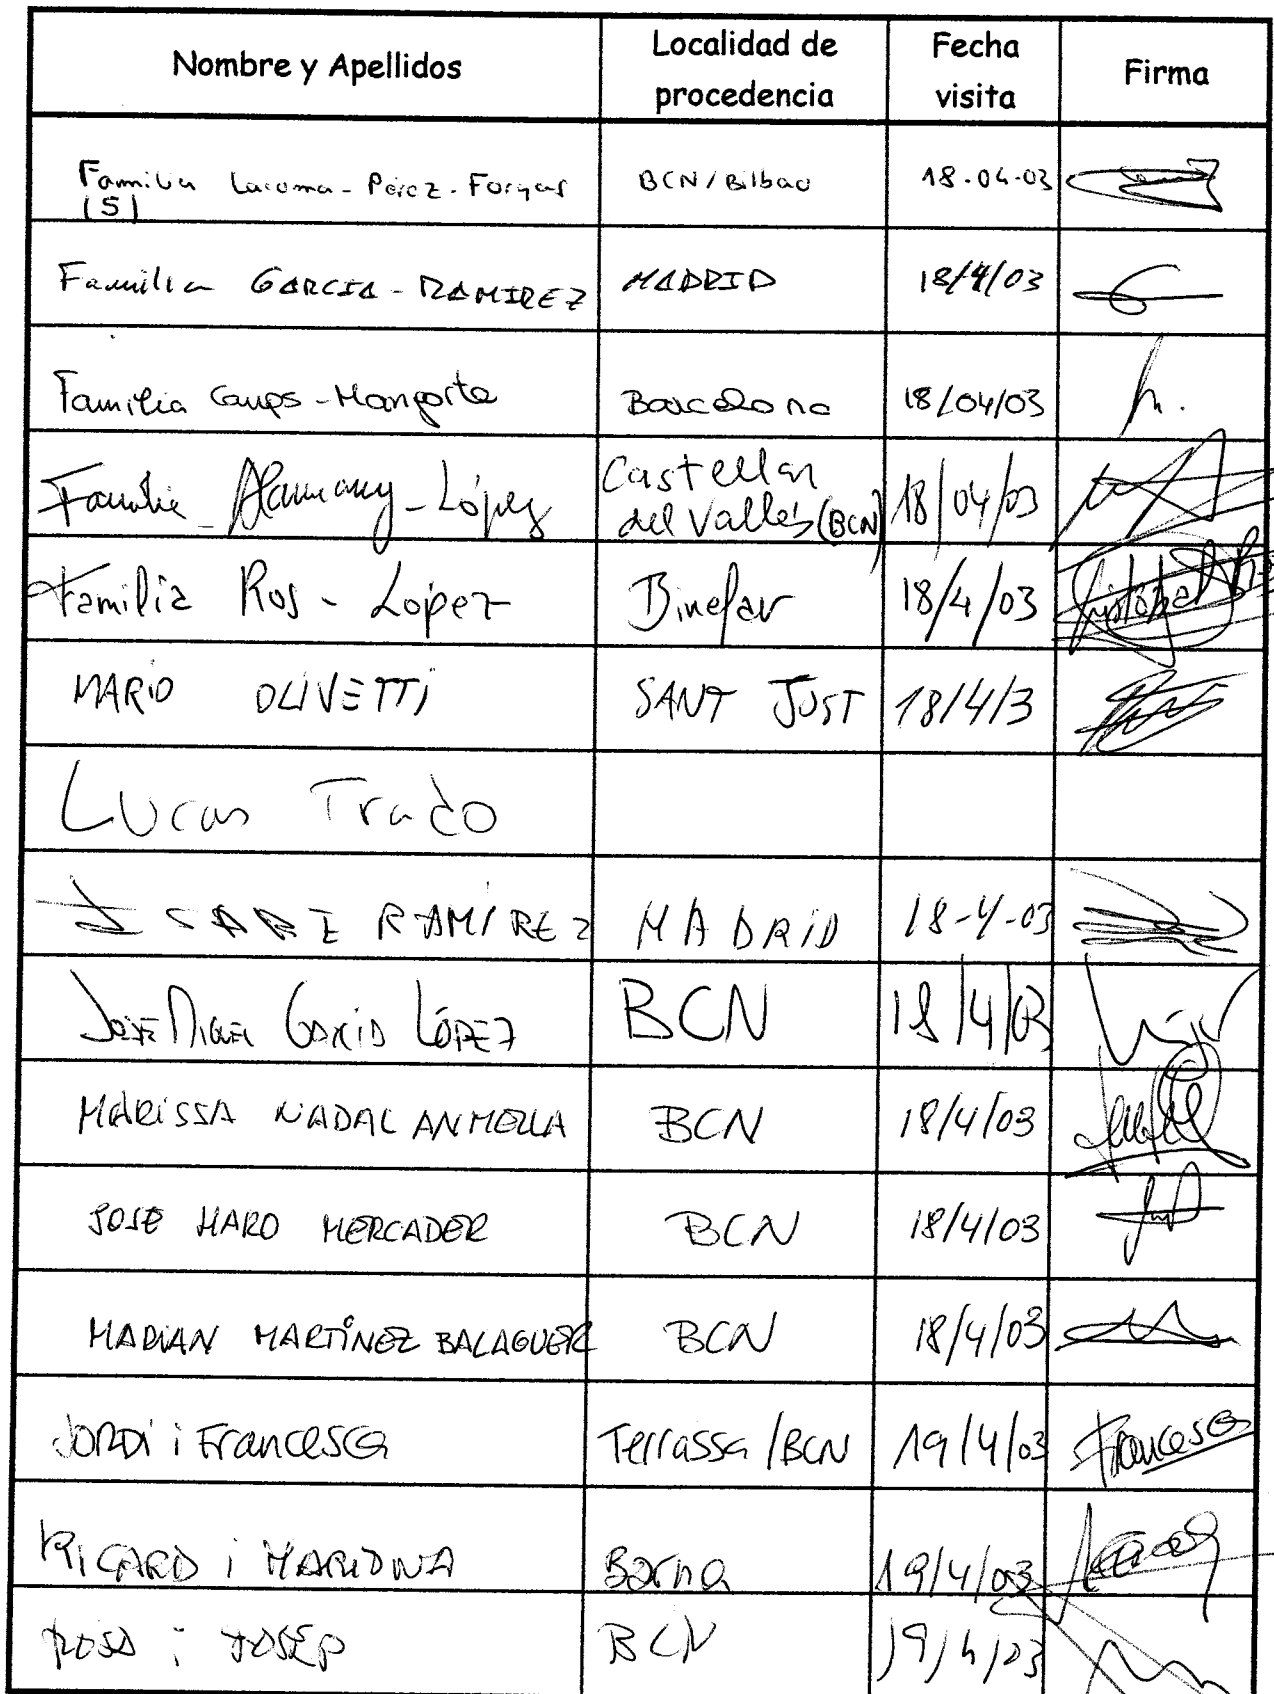 Nombre y Apellidos Localidad de procedencia Fecha visita Firma
Familia Lacoma-Pérez-Forgas (5) BCN/Bilbao 18.04.03
Familia GARCIA-RAMIREZ MADRID 18/4/03
Familia Camps-Mangorta Barcelona 18/04/03 h.
Familia Alamany-López Castellar del Vallés (BCN) 18/04/03
Familia Ros-Lopez Binefar 18/4/03 Cristobal
MARIO OLIVETTI SANT JUST 18/4/3
Lucas Trado
RAMIREZ MADRID 18-4-03
JOSE MIGUEL GARCIA LÓPEZ BCN 18/4/03
MARISSA NADAL ANMELLA BCN 18/4/03
JOSE HARO MERCADER BCN 18/4/03
MARIAN MARTÍNEZ BALAGUER BCN 18/4/03
JORDI i Francesca Terrassa/BCN 19/4/03 Francesca
RICARD i MARIONA Barna 19/4/03
ROSA i JOSEP BCN 19/4/03